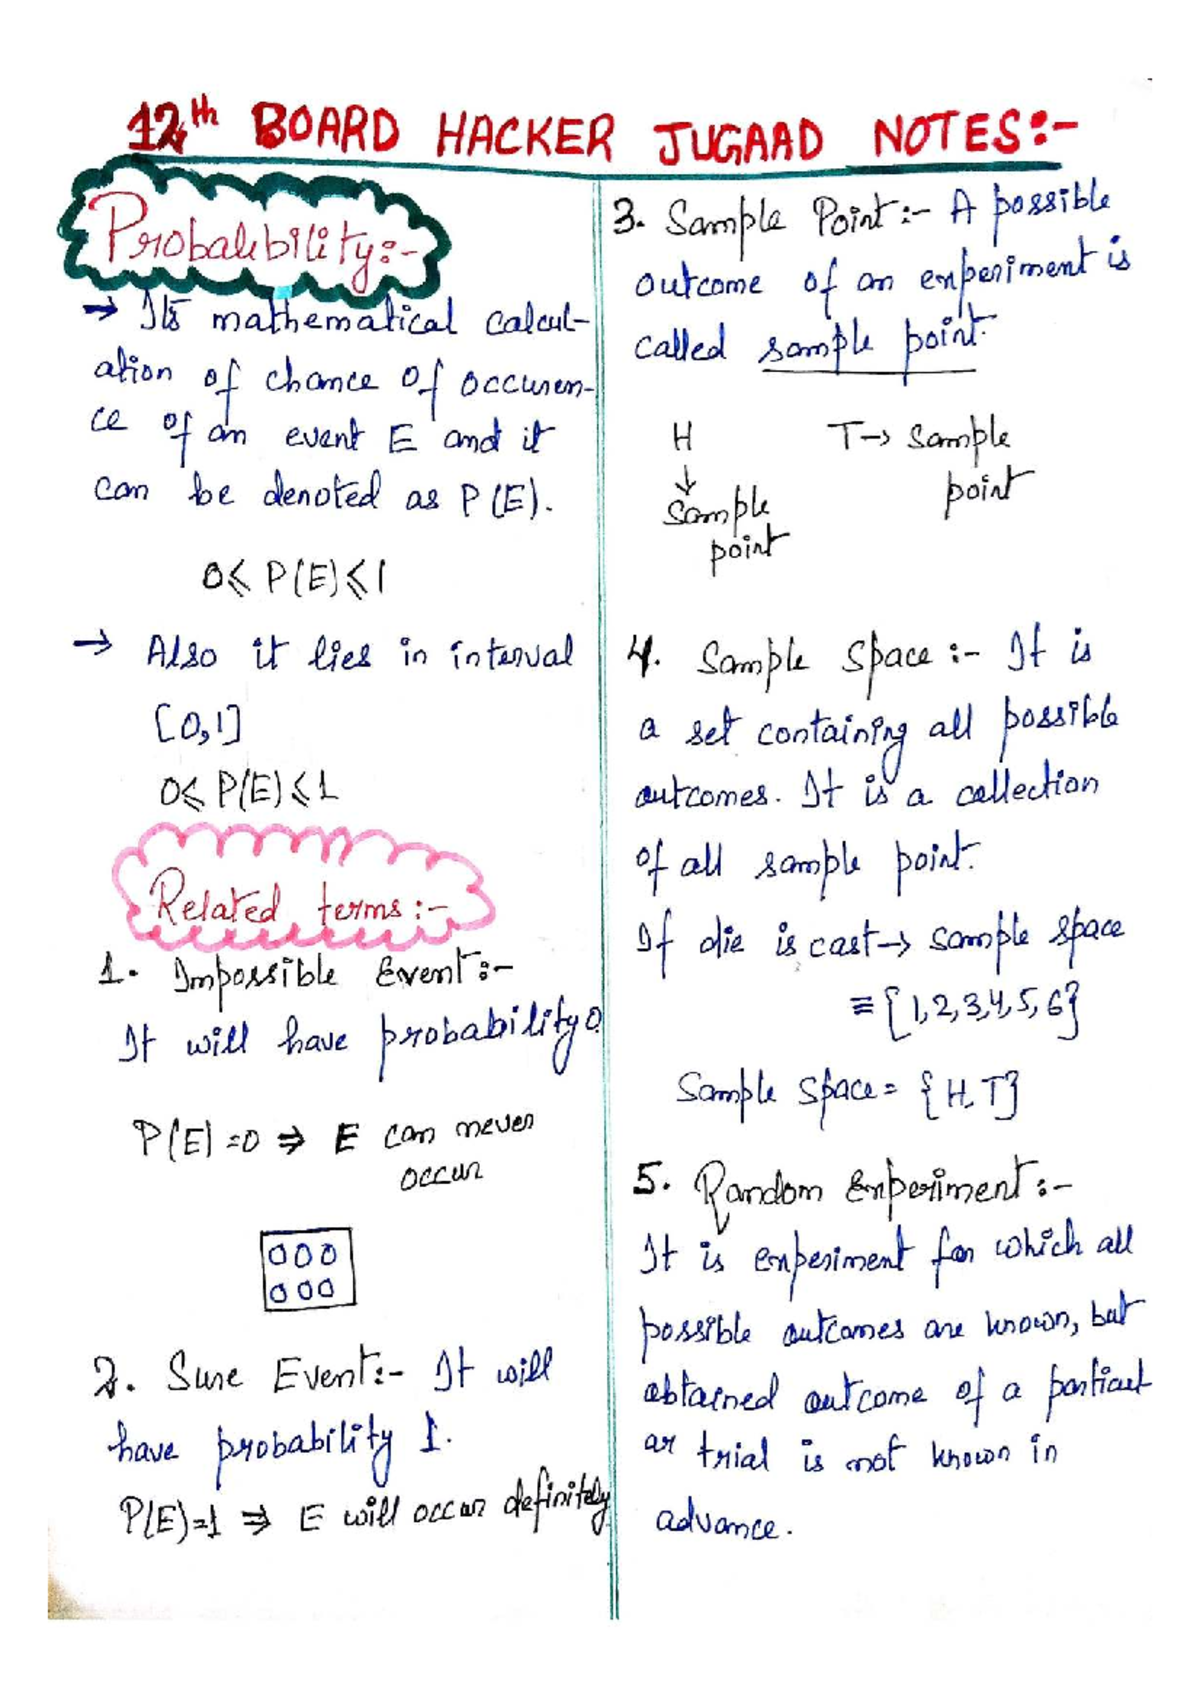 12th BOARD HACKER JUGAAD NOTES:-
Probability:-
→ It's mathematical calcul-
ation of chance of occuren-
ce of an event E and it
can be denoted as P(E).
0⩽ P(E)⩽1
→ Also it lies in interval
[0,1]
0⩽ P(E)⩽1
Related terms:-
1. Impossible Event:-
It will have probability 0
P(E)=0 ⇒ E can never
occur
000
000
2. Sure Event:- It will
have probability 1.
P(E)=1 ⇒ E will occur definitely
3. Sample Point:- A possible
outcome of an experiment is
called sample point.
H T→ sample
↓ point
Sample
point
4. Sample Space:- It is
a set containing all possible
outcomes. It is a collection
of all sample point.
If die is cast→ sample space
≡ {1,2,3,4,5,6}
Sample Space= {H,T}
5. Random Experiment:-
It is experiment for which all
possible outcomes are known, but
obtained outcome of a particul
ar trial is not known in
advance.